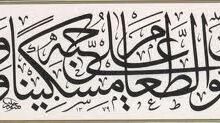 الطعام على حبه مسكينا